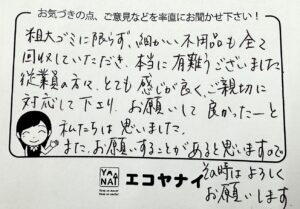 お気づきの点、ご意見などを率直にお聞かせ下さい!
粗大ゴミに限らず、細かい不用品も全て
回収していただき、本当に有難うございました
従業員の方々、とても感じが良く、ご親切に
対応して下さり、お願いして良かったーと
私たちは思いました。
また、お願いすることがあると思いますので
その時はよろしく
お願いします。
YA
NAI
エコヤナイ